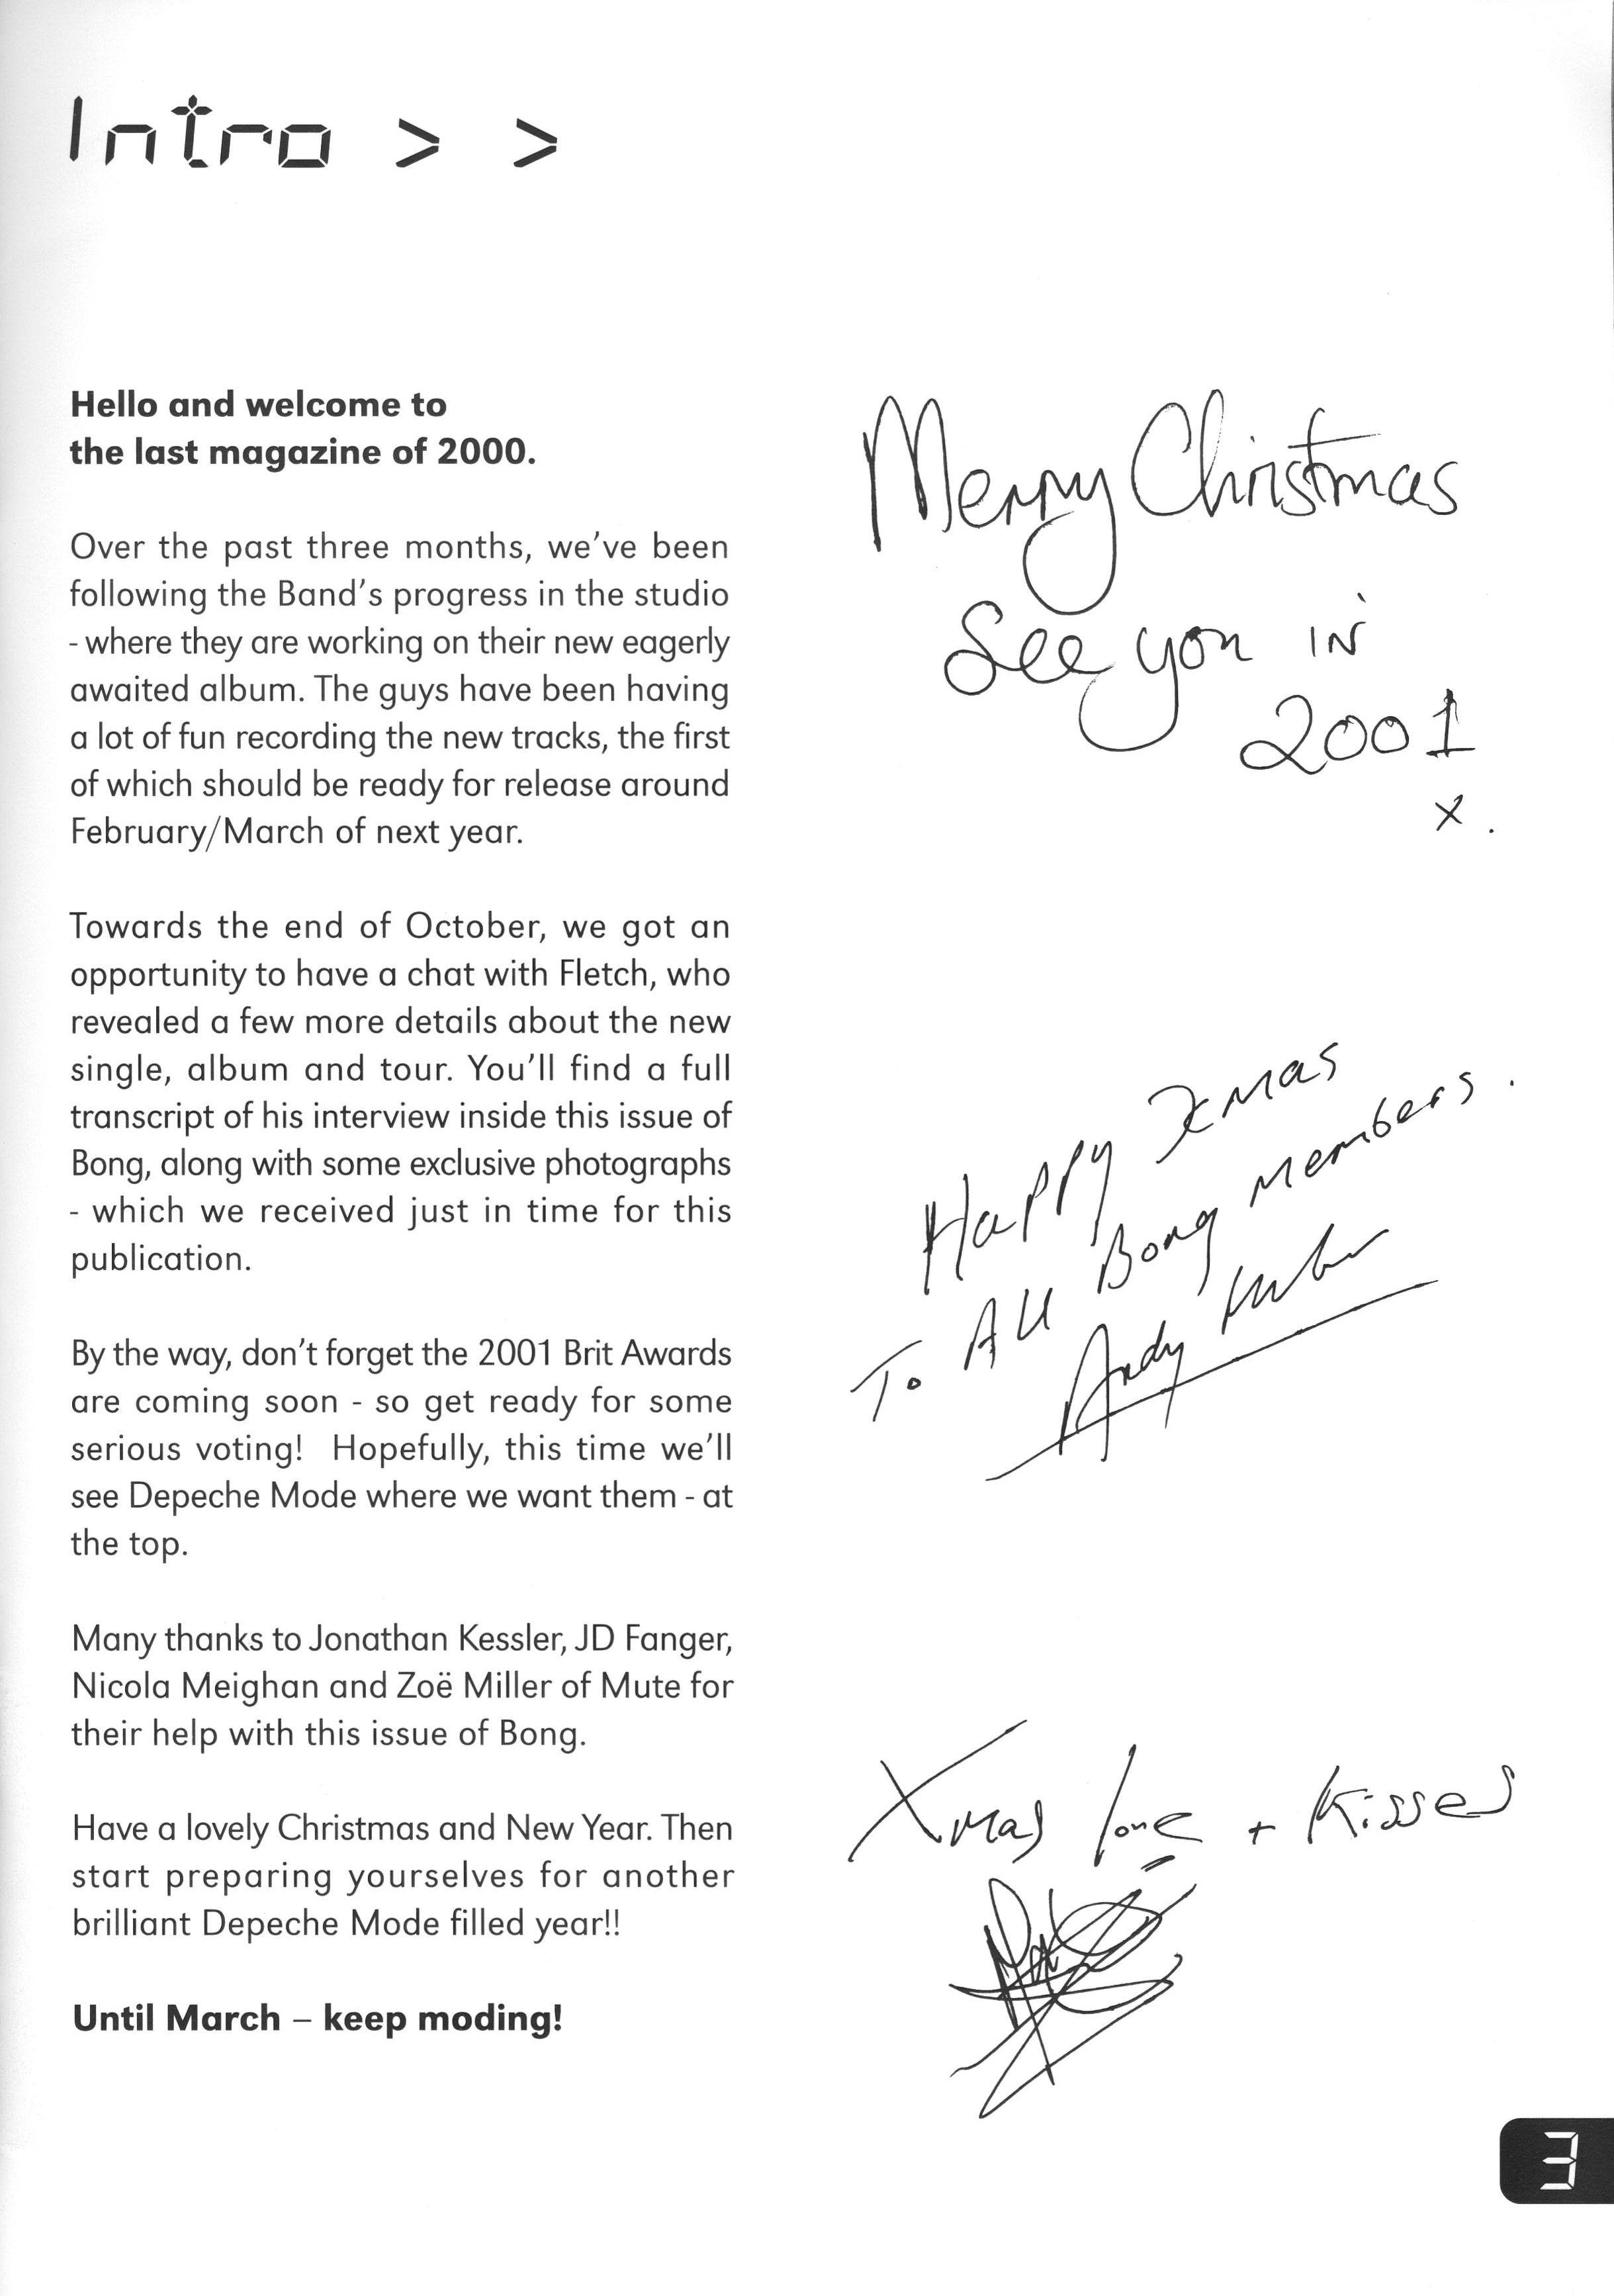 Intro > >
Hello and welcome to
the last magazine of 2000.
Over the past three months, we've been
following the Band's progress in the studio
- where they are working on their new eagerly
awaited album. The guys have been having
a lot of fun recording the new tracks, the first
of which should be ready for release around
February/March of next year.
Towards the end of October, we got an
opportunity to have a chat with Fletch, who
revealed a few more details about the new
single, album and tour. You'll find a full
transcript of his interview inside this issue of
Bong, along with some exclusive photographs
- which we received just in time for this
publication.
By the way, don't forget the 2001 Brit Awards
are coming soon - so get ready for some
serious voting!  Hopefully, this time we'll
see Depeche Mode where we want them - at
the top.
Many thanks to Jonathan Kessler, JD Fanger,
Nicola Meighan and Zoë Miller of Mute for
their help with this issue of Bong.
Have a lovely Christmas and New Year. Then
start preparing yourselves for another
brilliant Depeche Mode filled year!!
Until March – keep moding!
Merry Christmas
See you in
2001
x.
Happy Xmas
To All Bong Members.
Andy
Xmas love + Kisses
3